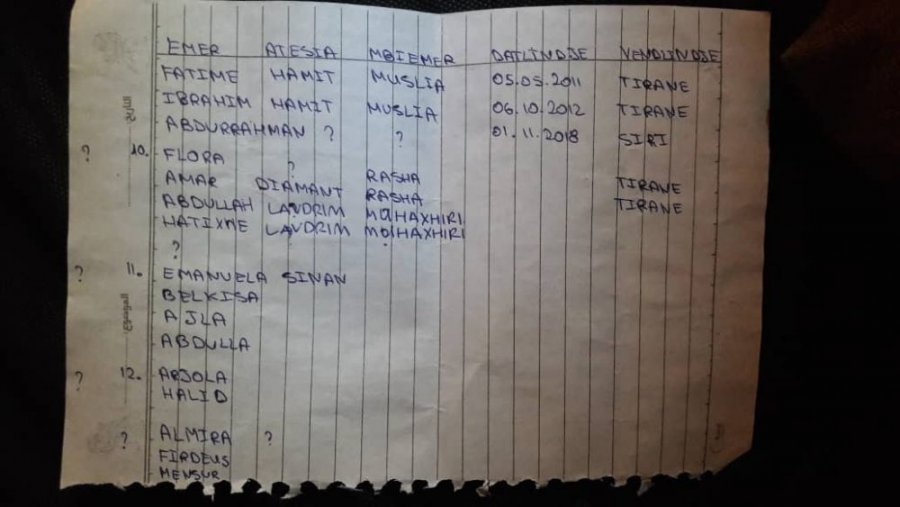 EMER ATESIA MBIEMER DATLINDJE VENDLINDJE
FATIME HAMIT MUSLIA 05.05.2011 TIRANE
IBRAHIM HAMIT MUSLIA 06.10.2012 TIRANE
ABDURRAHMAN ? ? 01.11.2018 SIRI
? 10. FLORA ?
AMAR DIAMANT RASHA TIRANE
ABDULLAH LAVDRIM RASHA TIRANE
HATIXHE LAVDRIM
?
? 11. EMANUELA SINAN
BELKISA
AJLA
ABDULLA
? 12. ARJOLA
HALID
? ALMIRA ?
FIRDEUS
MENSUR
التاريخ
الموضوع